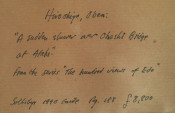 Hiroshige, Oban:
"A sudden shower over Ohashi Bridge
at Atake"
from the series "The hundred views of Edo"
1800 Pg. 188 £8,800